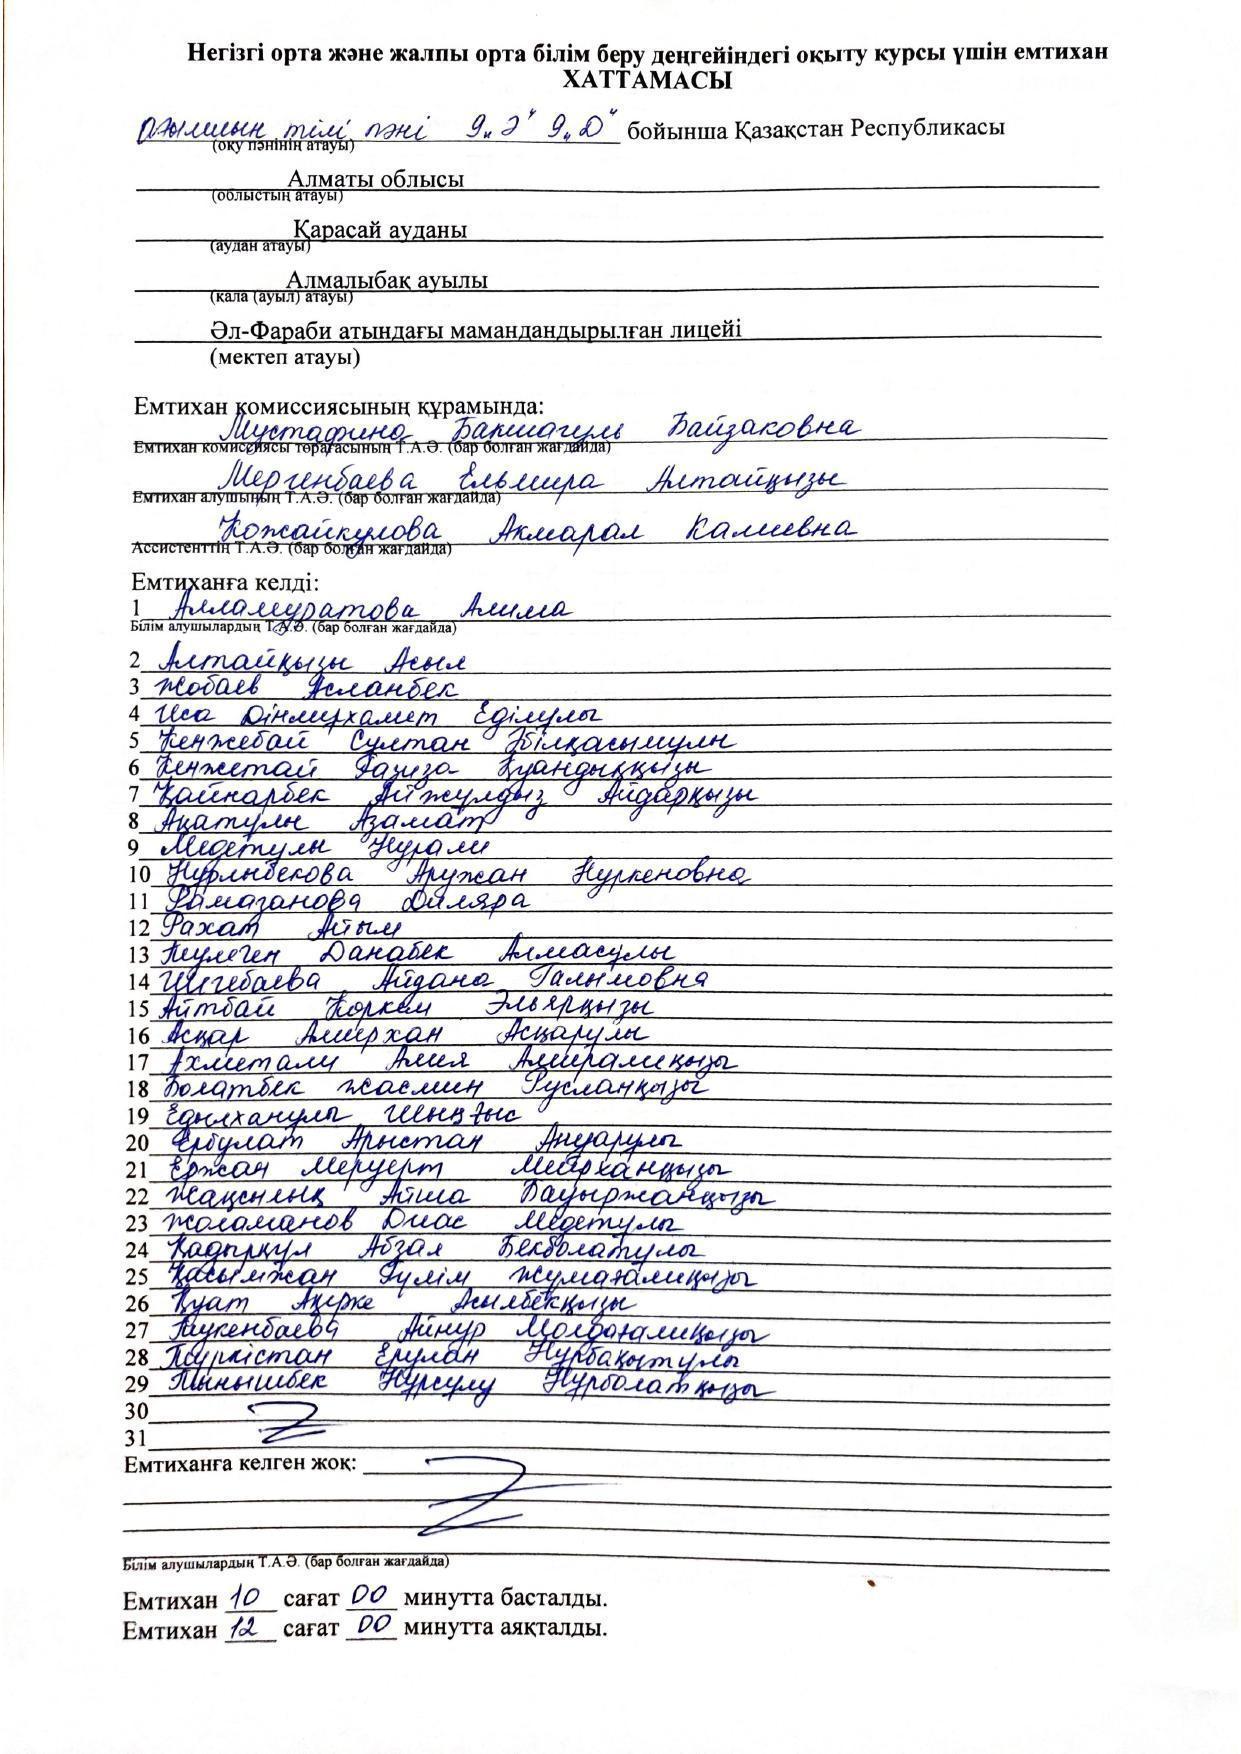 Негізгі орта және жалпы орта білім беру деңгейіндегі оқыту курсы үшін емтихан
ХАТТАМАСЫ
Ағылшын тілі пәні 9 „Ә" 9 „Д" бойынша Қазақстан Республикасы
(оқу пәнінің атауы)
Алматы облысы
(облыстың атауы)
Қарасай ауданы
(аудан атауы)
Алмалыбақ ауылы
(қала (ауыл) атауы)
Әл-Фараби атындағы мамандандырылған лицейі
(мектеп атауы)
Емтихан комиссиясының құрамында:
Мустафина Бакшагуль Байзаковна
Емтихан комиссиясы төрағасының Т.А.Ә. (бар болған жағдайда)
Мергенбаева Ельмира Алтайқызы
Емтихан алушының Т.А.Ә. (бар болған жағдайда)
Кожайкулова Акмарал Калиевна
Ассистенттің Т.А.Ә. (бар болған жағдайда)
Емтиханға келді:
1 Алламуратова Алима
Білім алушылардың Т.А.Ә. (бар болған жағдайда)
2 Алтайқызы Асыл
3 Жобаев Асланбек
4 Иса Дінмұхамет Еділұлы
5 Кенжебай Султан Әбілқасымұлы
6 Кенжетай Газиза Қуандыққызы
7 Қайнарбек Айжұлдыз Айдарқызы
8 Ақатұлы Азамат
9 Медетұлы Нұрали
10 Нурлыбекова Аружан Нуркеновна
11 Рамазанова Диляра
12 Рахат Айым
13 Төлеген Данабек Алмасұлы
14 Шигебаева Айдана Галымовна
15 Айтбай Көркем Эльярқызы
16 Асқар Амирхан Асқарұлы
17 Ахметали Алия Амиралиқызы
18 Болатбек Жасмин Русланқызы
19 Едылханұлы Шыңғыс
20 Ербулат Арыстан Ануарұлы
21 Ержан Меруерт Мейрханқызы
22 Жақсылық Айша Бауыржанқызы
23 Жоламанов Диас Медетұлы
24 Қадырқұл Абзал Бекболатұлы
25 Қасымжан Гүлім Жумағалиқызы
26 Қуат Ақерке Асылбекқызы
27 Таукенбаева Айнур Молдағалиқызы
28 Түркістан Ерулан Нұрбақытұлы
29 Тынышбек Нұрсұлу Нұрболатқызы
30
31
Емтиханға келген жоқ:
Білім алушылардың Т.А.Ә. (бар болған жағдайда)
Емтихан 10 сағат 00 минутта басталды.
Емтихан 12 сағат 00 минутта аяқталды.